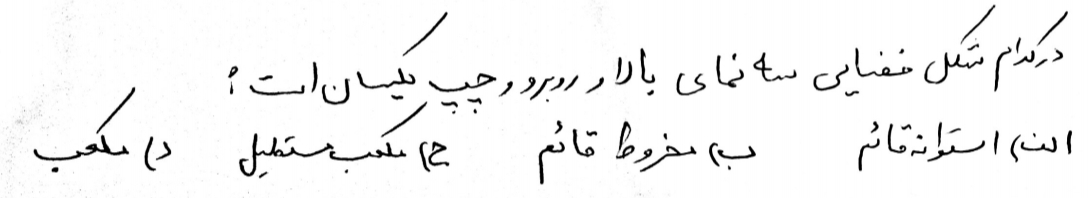 در کدام شکل فضایی سه نمای بالا و روبرو و چپ یکسان است؟
الف) استوانه قائم ب) مخروط قائم ج) مکعب مستطیل د) مکعب